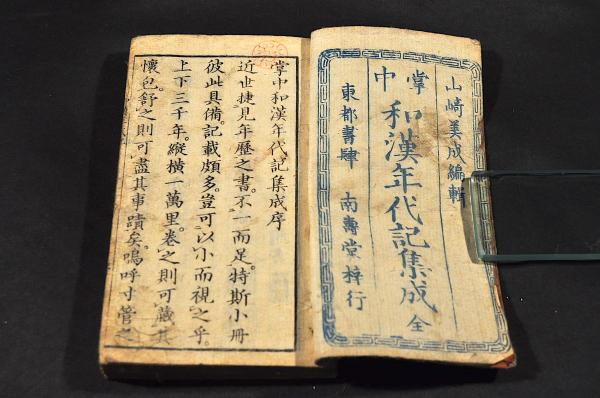 山崎美成編輯
掌中
和漢年代記集成 全
東都書肆 南壽堂梓行
掌中和漢年代記集成序
近世捷見年歷之書。不一而足。特斯小冊
彼此具備。記載頗多。豈可以小而視之乎。
上下三千年。縱橫一萬里。卷之則可藏其
懷包。舒之則可盡其事蹟矣。嗚呼寸管之